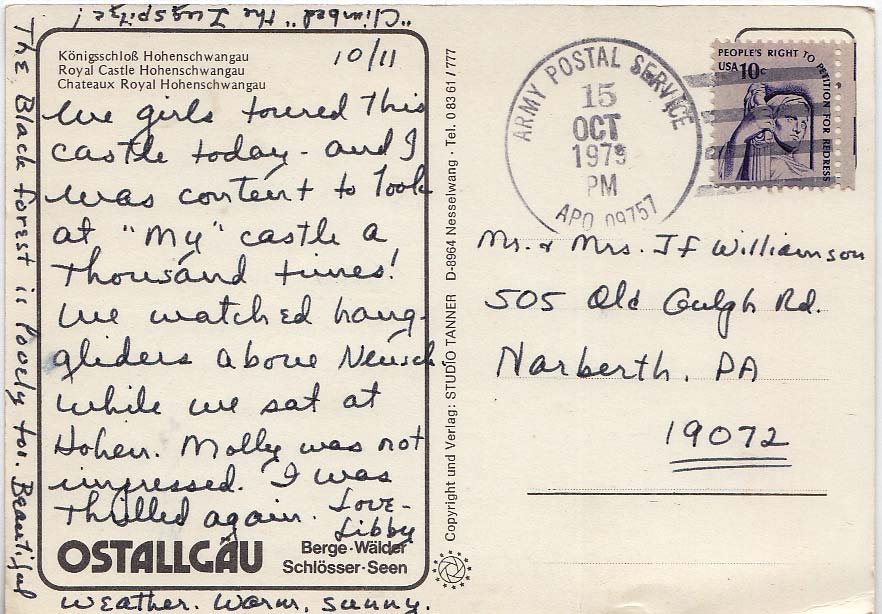 "Climbed" the Zugspitze!
Königsschloß Hohenschwangau
Royal Castle Hohenschwangau
Chateaux Royal Hohenschwangau
10/11
We girls toured this
castle today - and I
was content to look
at "my" castle a
thousand times!
We watched hang-
gliders above Neusch
while we sat at
Hohen. Molly was not
impressed. I was
thrilled again. Love -
Libby
OSTALLGÄU
Berge·Wälder
Schlösser·Seen
The Black Forest is lovely too. Beautiful
weather. Warm, sunny.
Copyright und Verlag: STUDIO TANNER D-8964 Nesselwang · Tel. 0 83 61 / 777
ARMY POSTAL SERVICE
15
OCT
1979
PM
APO 09757
PEOPLE'S RIGHT TO PETITION FOR REDRESS
USA 10c
Mr. & Mrs. J F Williamson
505 Old Gulph Rd.
Narberth, PA
19072